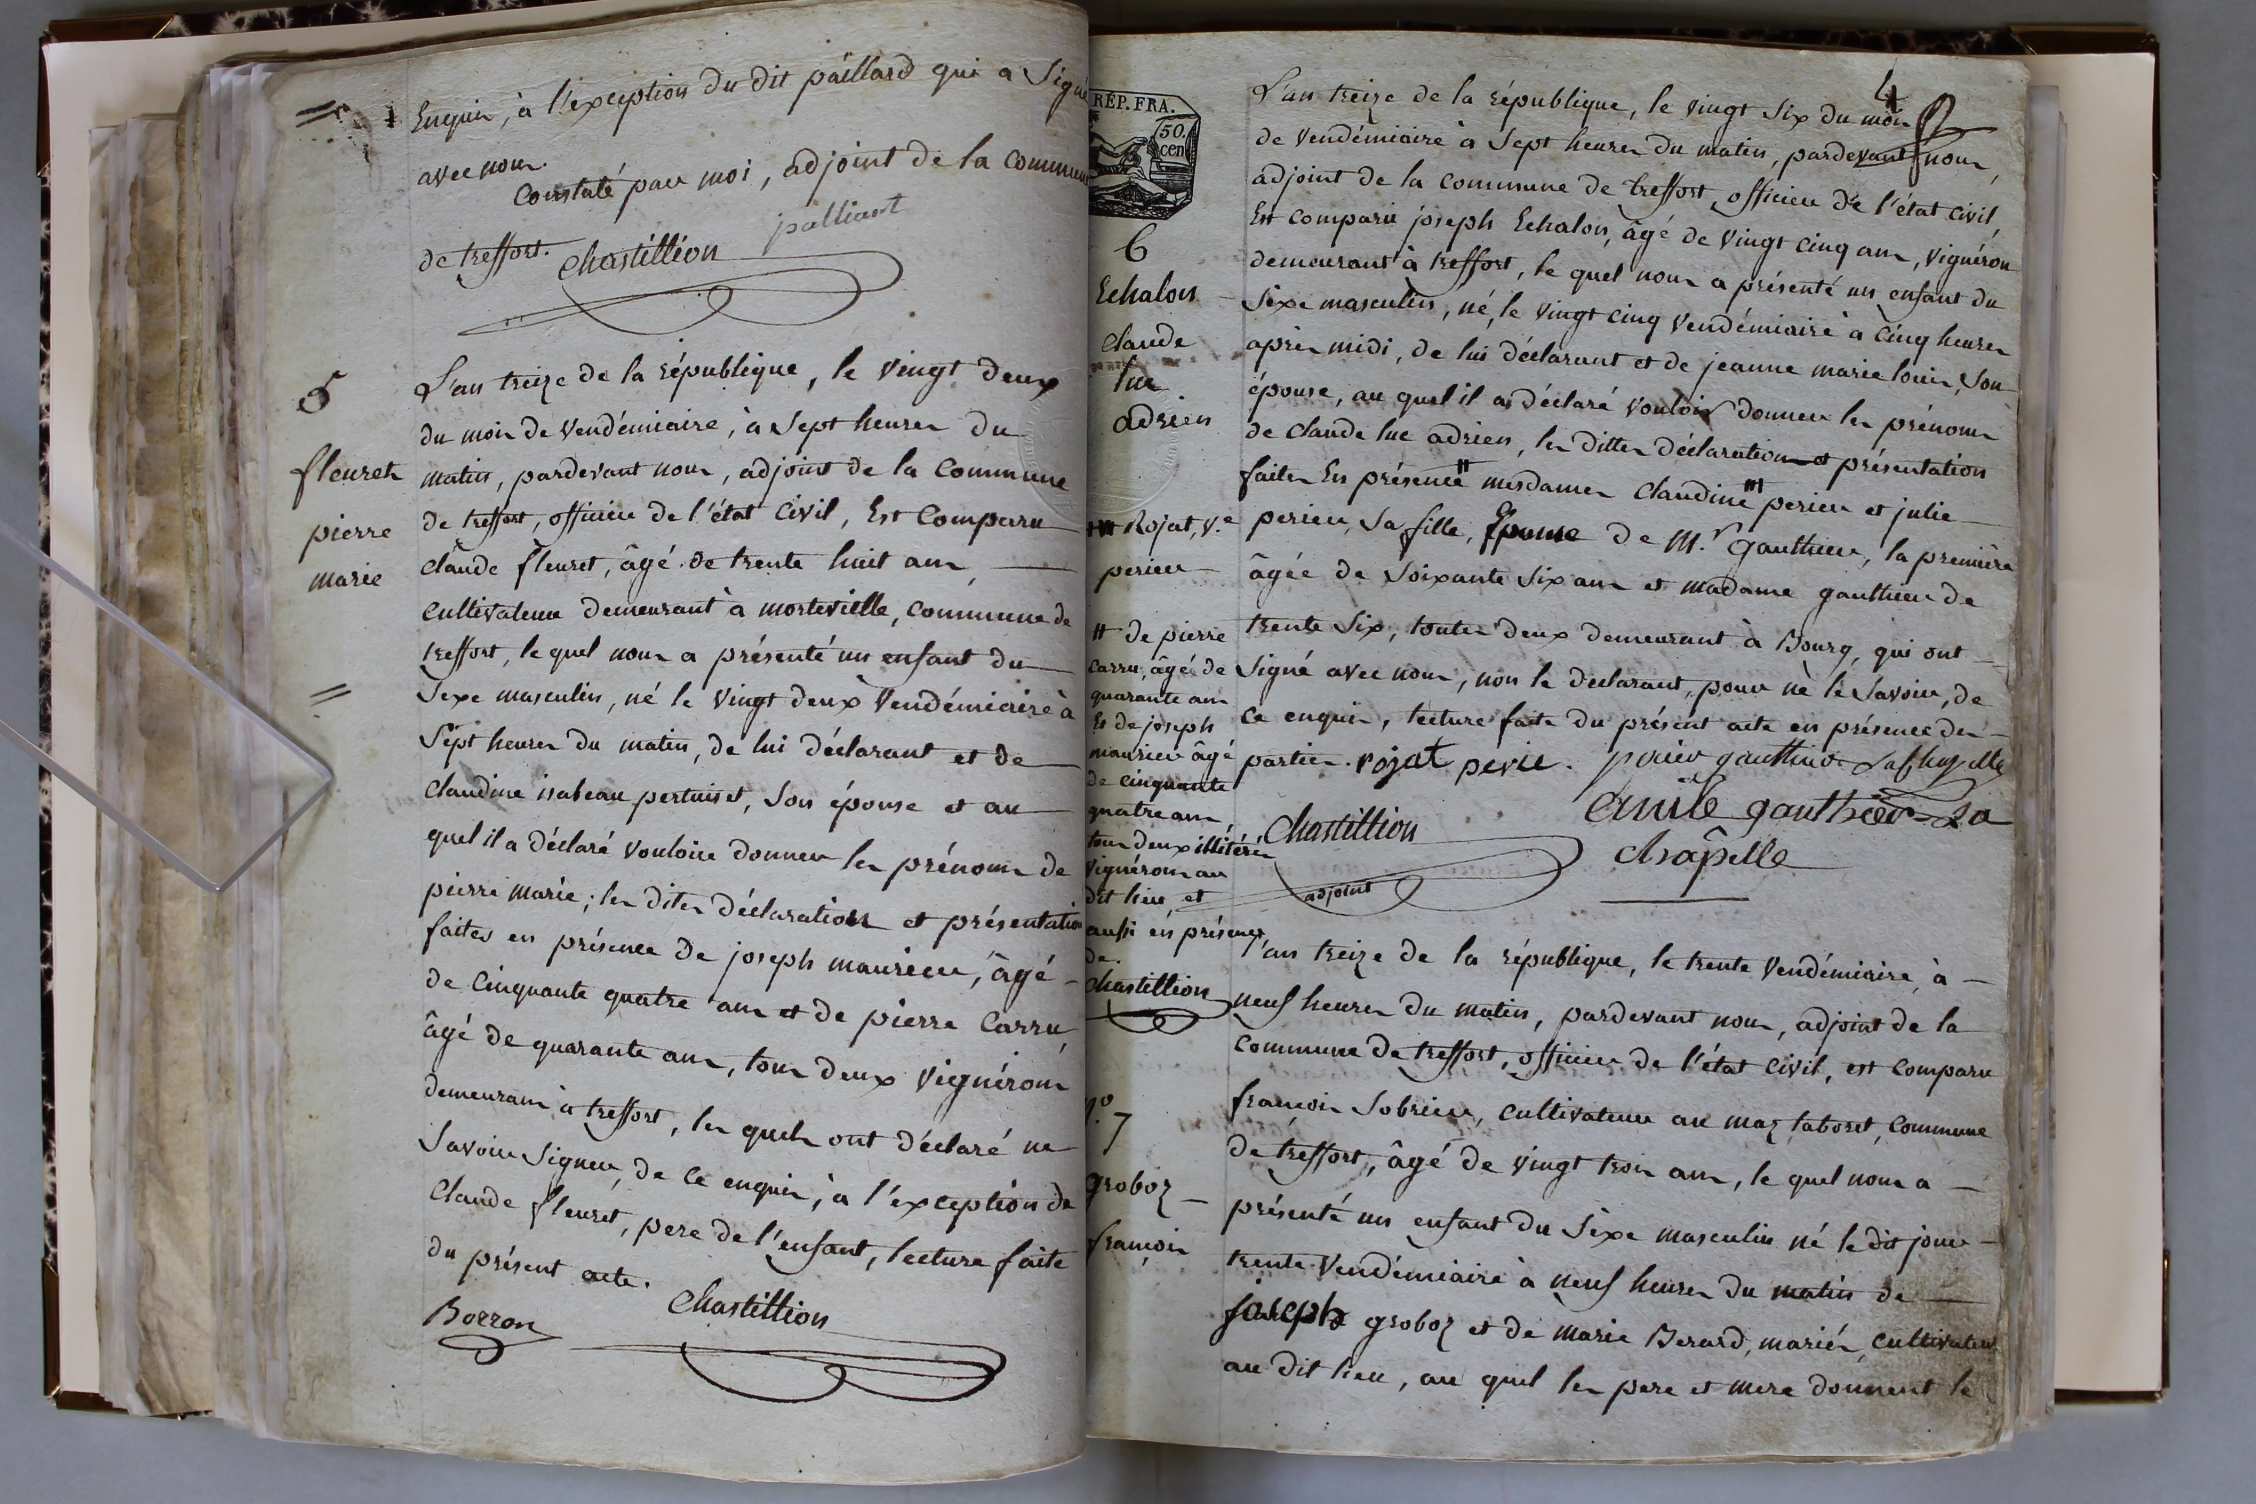 Enquis, à l'exception du dit paillard qui a Signé
avec nous.
Constaté par moi, adjoint de la Commune
de treffort. Chastillion palliant
5
fleuret
pierre
marie
L'an treize de la république, le vingt deux
du mois de vendémiaire, à sept heures du
matin, pardevant nous, adjoint de la Commune
de treffort, officier de l'état civil, Est Comparu
claude fleuret, âgé de trente huit ans,
cultivateur demeurant à morteville, commune de
treffort, le quel nous a présenté un enfant du
Sexe masculin, né le vingt deux Vendémiaire à
Sept heures du matin, de lui déclarant et de
Claudine isabeau pertuiset, son épouse et au
quel il a déclaré vouloir donner les prénoms de
pierre marie; les dites déclaration et présentation
faites en présence de joseph maurier, âgé
de cinquante quatre ans et de pierre Carru,
âgé de quarante ans, tous deux vignérons
demeurans à treffort, les quels ont déclaré ne
Savoir signer, de ce enquis, à l'exception de
Claude fleuret, pere de l'enfant, lecture faite
du présent acte.
Borron Chastillion
RÉP. FRA.
50
cen
4
6
Echalon
claude
luc
adrien
L'an treize de la république, le vingt six du mois
de vendémiaire à sept heures du matin, pardevant nous,
adjoint de la commune de treffort, officier de l'état civil,
Est comparu joseph Echalon, âgé de vingt cinq ans, vignéron
demeurant à treffort, le quel nous a présenté un enfant du
Sexe masculin, né, le vingt cinq vendémiaire à cinq heures
après midi, de lui déclarant et de jeanne marie louis, son
épouse, au quel il a déclaré vouloir donner les prénoms
de claude luc adrien, les dittes déclaration et présentation
faites En présence # mesdames Claudine ### perier et julie
perier, sa fille, Epouse de M.r gauthier, la première
âgée de soixante six ans et madame gauthier de
trente six, toutes deux demeurant à Bourg, qui ont
signé avec nous, non le déclarant, pour ne le savoir, de
ce enquis, lecture faite du présent acte en présence des
parties. rojat perie. perier gauthier
Chastillion
adjoint
emile gauthier La
chapelle
### Rojat, v.e
perier
# de pierre
carru, âgé de
quarante ans
Et de joseph
maurier âgé
de cinquante
quatre ans,
tous deux illitérés
vignérons au
dit lieu, et
aussi en présence
de.
Chastillion
n.o 7
groboz
françois
l'an treize de la république, le trente vendémiaire, à
neuf heures du matin, pardevant nous, adjoint de la
commune de treffort, officier de l'état civil, est comparu
françois Sobrier, cultivateur au maz taboret, Commune
de treffort, âgé de vingt trois ans, le quel nous a
présenté un enfant du sexe masculin né le dit jour
trente vendémiaire à neuf heures du matin de
joseph groboz et de marie Berard, mariés, cultivateurs
au dit lieu, au quel les pere et mere donnent le